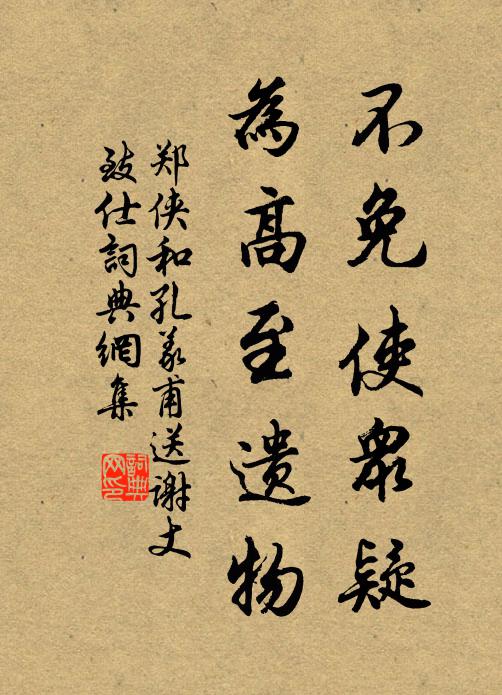 不免使眾疑
為高至遺物
郑侠和孔義甫送谢丈
致仕詞典網集
詞典
网印